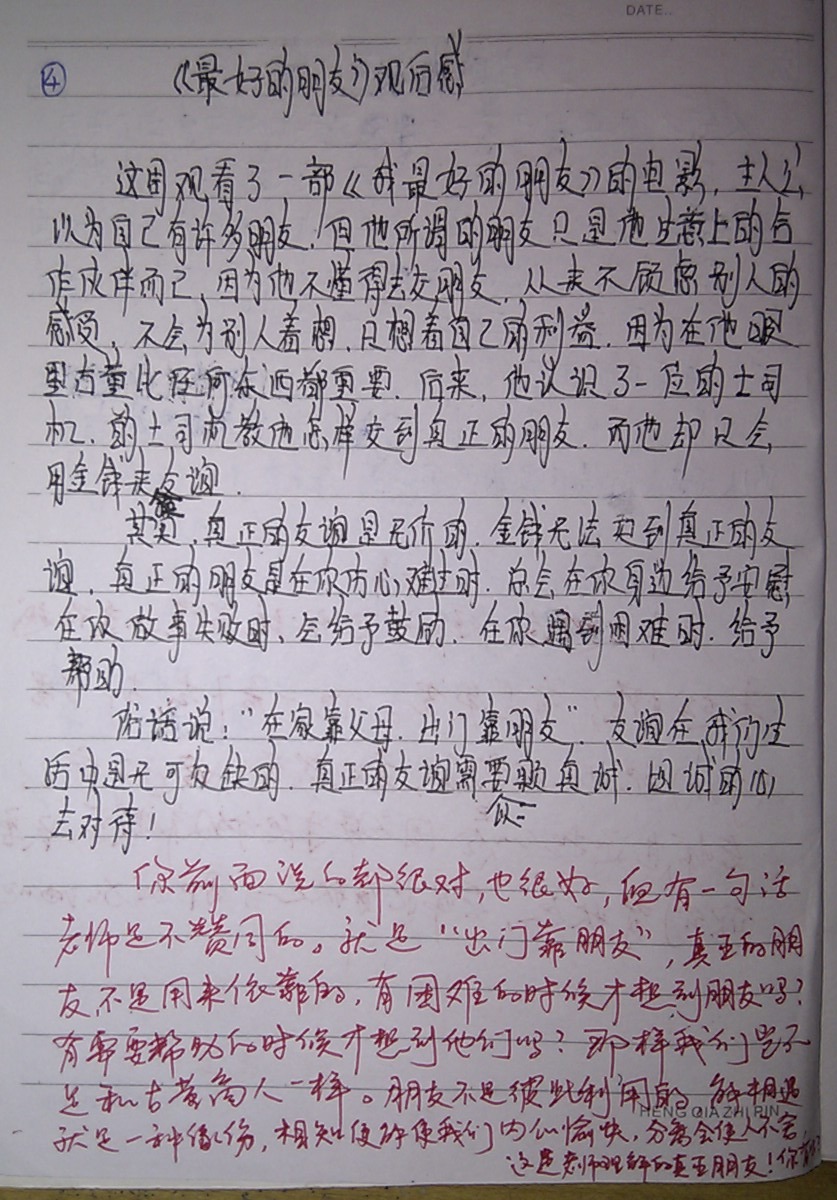 DATE..
④ 《最好的朋友》观后感
这周观看了一部《我最好的朋友》的电影，主人公
以为自己有许多朋友，但他所谓的朋友只是他生意上的合
作伙伴而已，因为他不懂得去交朋友，从来不顾虑别人的
感受，不会为别人着想，只想着自己的利益，因为在他眼
里古董比任何东西都重要，后来，他认识了一位的士司
机，的士司机教他怎样交到真正的朋友，而他却只会
用金钱来换友谊．
其实，真正的友谊是无价的，金钱无法买到真正的友
谊，真正的朋友是在你内心难过时，总会在你身边给予安慰，
在你做事失败时、会给予鼓励，在你遇到困难时，给予
帮助．
俗话说：“在家靠父母，出门靠朋友”，友谊在我们生
活中是无可欠缺的，真正的友谊需要你真诚，用诚的心
去对待！
你前面说的都很对，也很好，但有一句话
老师是不赞同的。就是“出门靠朋友”，真正的朋
友不是用来依靠的，有困难的时候才想到朋友吗？
有事要帮助的时候才想到他们吗？那样我们岂不
是和古董商人一样。朋友不是彼此利用的，能相遇
HENG QIA ZHI PIN
就是一种缘份，相知便能使我们内心愉快，分离会使人不舍，
这是老师理解的真正朋友！你